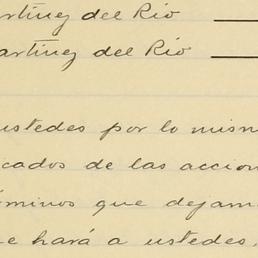 artinez del Rio
artinez del Rio
ustedes por lo mism
cados de las accion
érminos que dejam
e hará a ustedes.